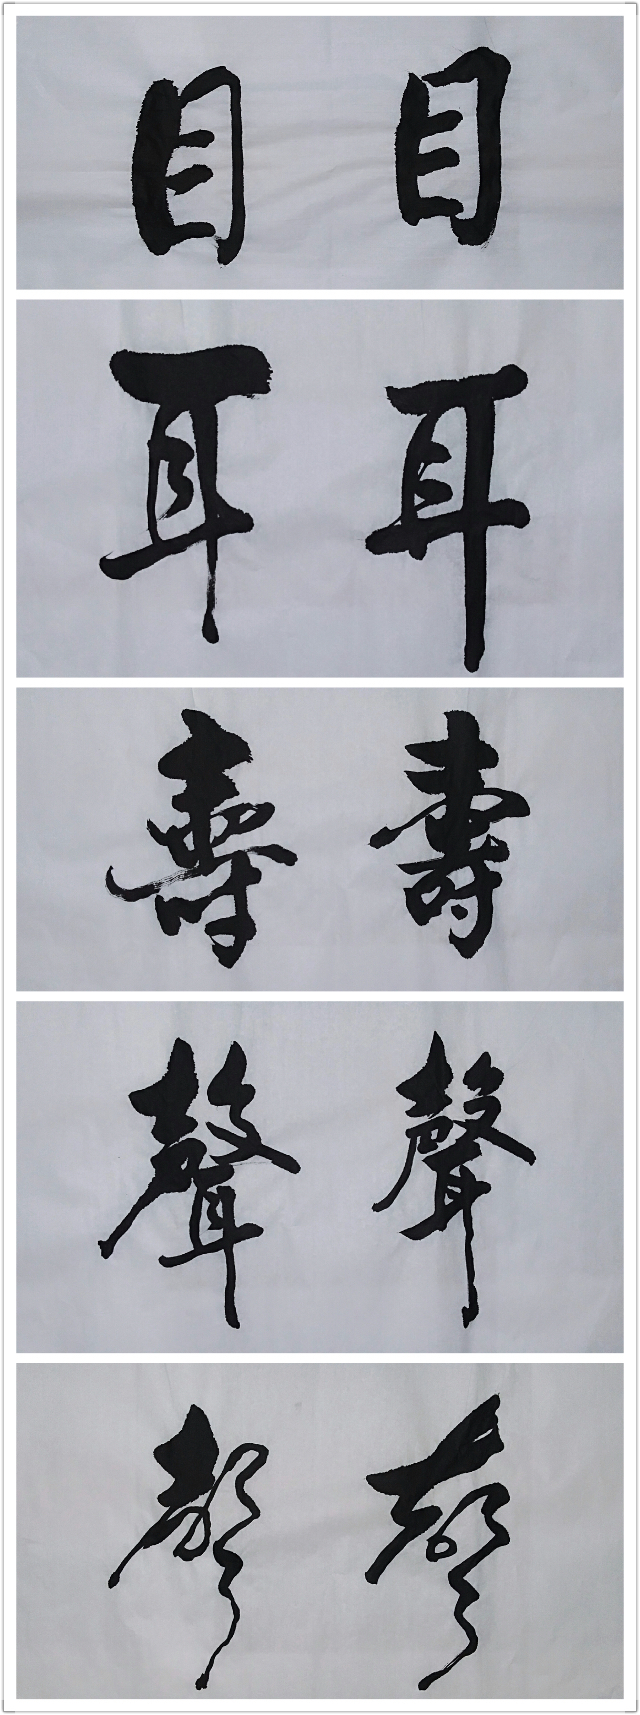 目 目
耳 耳
壽 壽
聲 聲
聲 聲